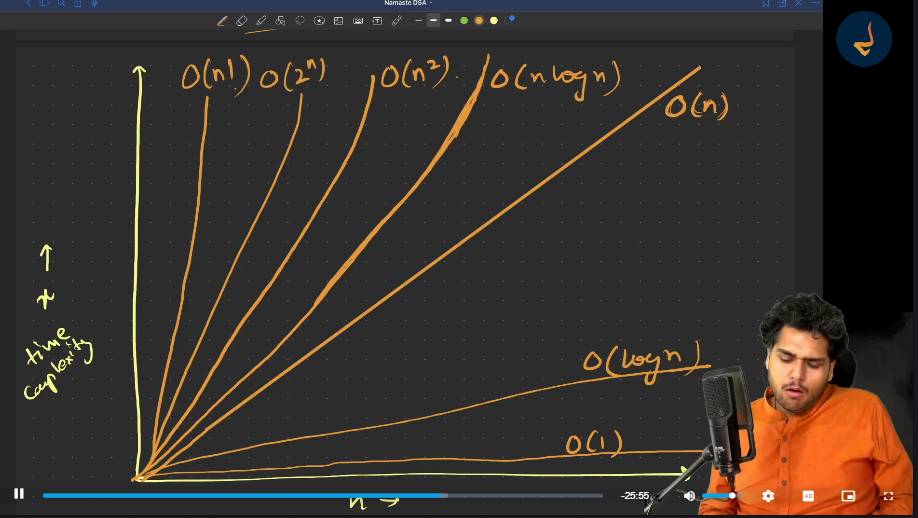 Namaste DSA
O(n!) O(2ⁿ) O(n²) O(n log n)
O(n)
↑
x
time
complexity
O(log n)
O(1)
-25:55
n →